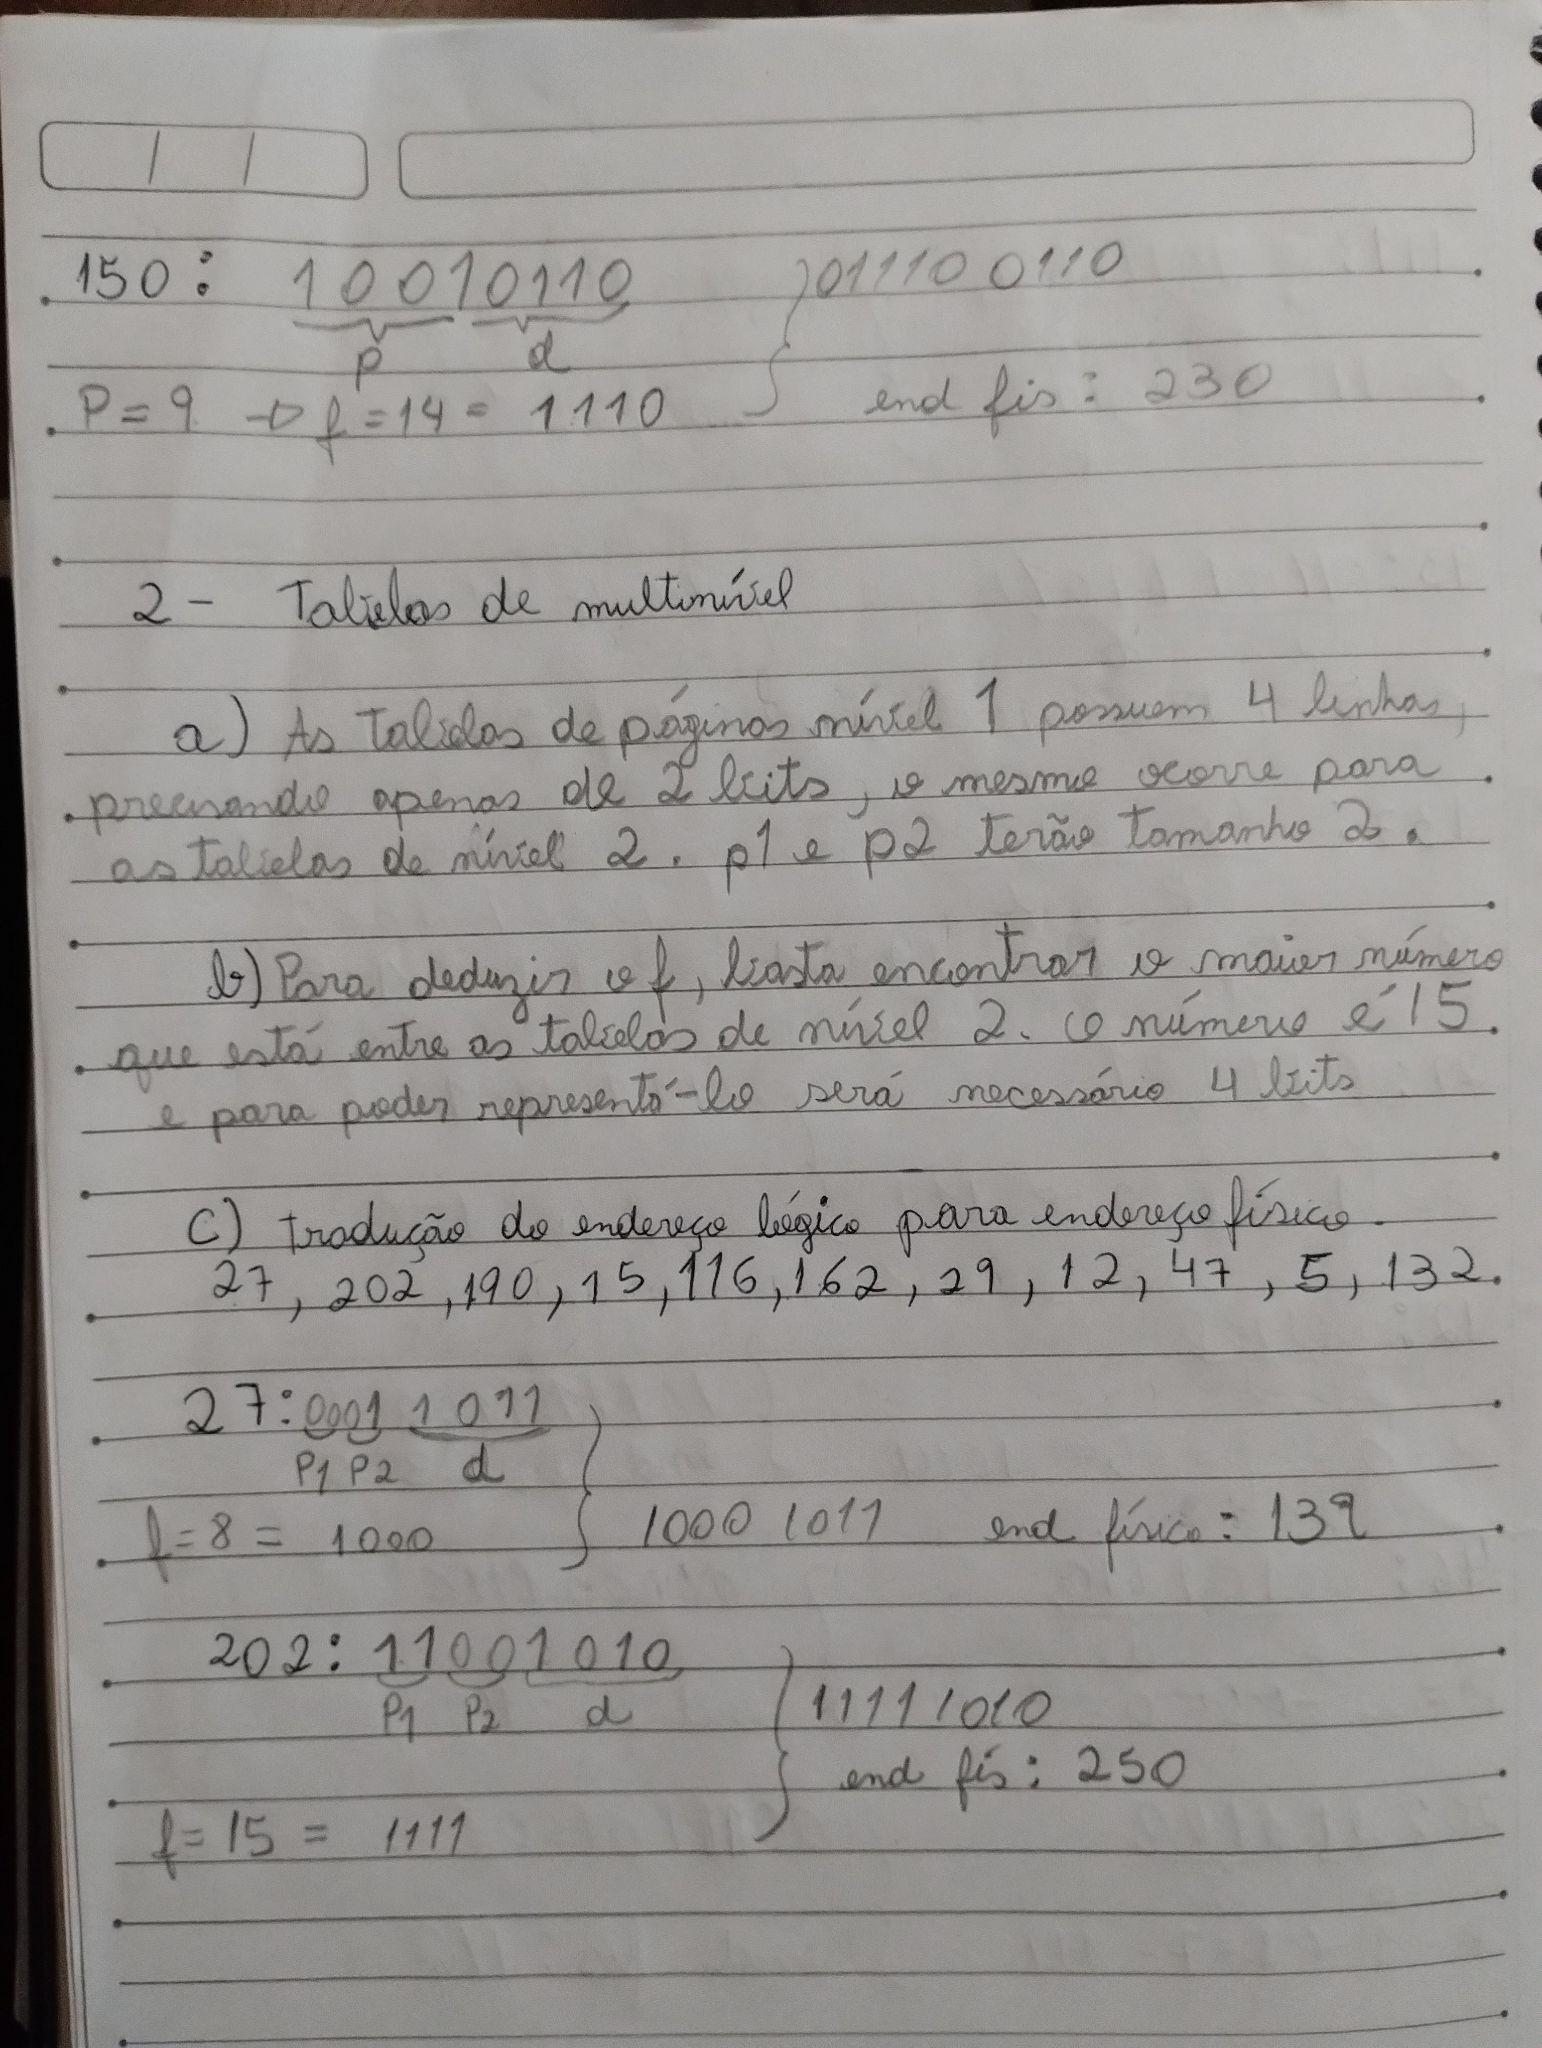 150: 10010110 } 01110 0110
p d
P = 9 → f = 14 = 1110 end fis: 230
2 - Tabelas de multinível
a) As tabelas de páginas nível 1 possuem 4 linhas,
precisando apenas de 2 bits, o mesmo ocorre para
as tabelas de nível 2. p1 e p2 terão tamanho 2.
b) Para deduzir o f, basta encontrar o maior número
que está entre as tabelas de nível 2. O número é 15
e para poder representá-lo será necessário 4 bits
C) tradução do endereço lógico para endereço físico.
27, 202, 190, 15, 116, 162, 29, 12, 47, 5, 132.
27: 0001 1011 }
P1 P2 d
f = 8 = 1000 1000 1011 end físico: 139
202: 11001010 }
P1 P2 d 11111010
end fís: 250
f = 15 = 1111